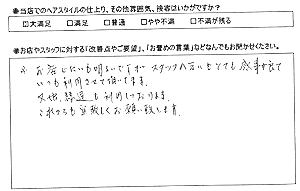 ●当店でのヘアスタイルの仕上り、その他雰囲気、接客はいかがですか?
□大満足 □満足 □普通 □やや不満 □不満が残る
●お店やスタッフに対する「改善点やご要望」、「お誉めの言葉」などなんでもお聞かせください。
お店じたいも明るいですが スタッフの方もとても感じが良くて
いつも利用させて頂いてます。
又他、 も利用しております。
これからも宜敷しくお願い致します。